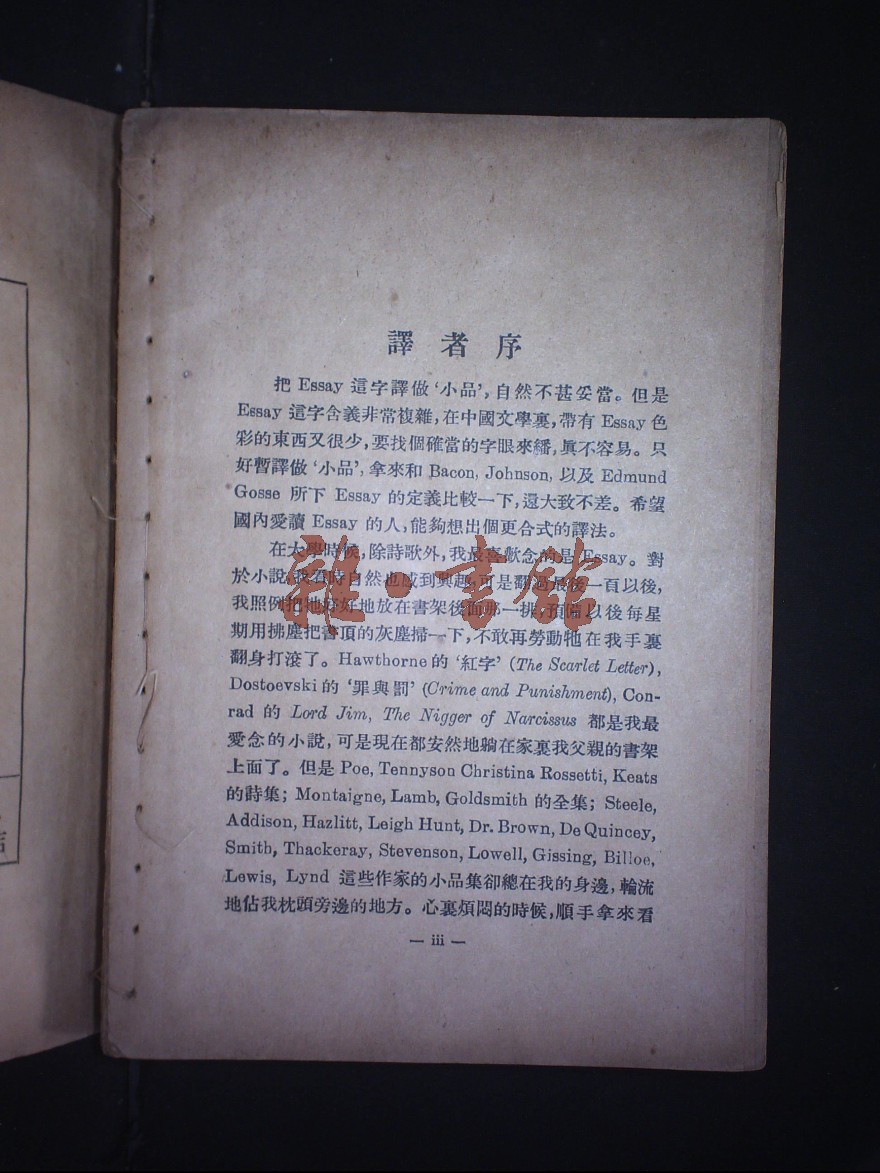 譯者序
把 Essay 這字譯做‘小品’,自然不甚妥當。但是
Essay 這字含義非常複雜,在中國文學裏,帶有 Essay 色
彩的東西又很少,要找個確當的字眼來繙,眞不容易。只
好暫譯做‘小品’,拿來和 Bacon, Johnson, 以及 Edmund
Gosse 所下 Essay 的定義比較一下,還大致不差。希望
國內愛讀 Essay 的人,能夠想出個更合式的譯法。
在大學時候,除詩歌外,我最喜歡念的是 Essay。對
於小說,我看時自然也感到興趣,可是翻過最後一頁以後,
我照例把牠好好地放在書架後面那一排,預備以後每星
期用拂塵把書頂的灰塵掃一下,不敢再勞動牠在我手裏
翻身打滾了。Hawthorne 的‘紅字’(The Scarlet Letter),
Dostoevski 的‘罪與罰’(Crime and Punishment), Con-
rad 的 Lord Jim, The Nigger of Narcissus 都是我最
愛念的小說,可是現在都安然地躺在家裏我父親的書架
上面了。但是 Poe, Tennyson Christina Rossetti, Keats
的詩集; Montaigne, Lamb, Goldsmith 的全集; Steele,
Addison, Hazlitt, Leigh Hunt, Dr. Brown, De Quincey,
Smith, Thackeray, Stevenson, Lowell, Gissing, Billoe,
Lewis, Lynd 這些作家的小品集卻總在我的身邊,輪流
地佔我枕頭旁邊的地方。心裏煩悶的時候,順手拿來看
— iii —
雜·書館